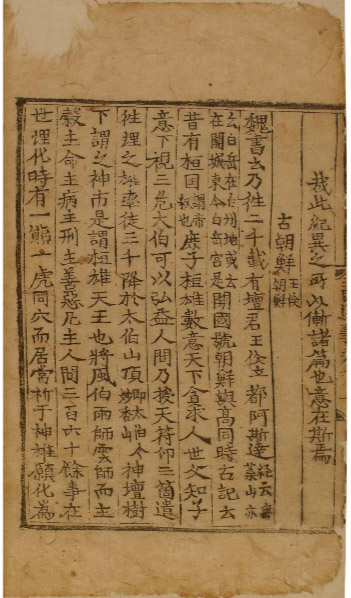 哉此紀異之所以慚諸篇也意在斯焉
古朝鮮王儉朝鮮
魏書云乃往二千載有壇君王儉立都阿斯達經云無葉山亦
云白岳在白州地或云在開城東今白岳宮是開國號朝鮮與高同時古記云
昔有桓国謂帝釋也庶子桓雄數意天下貪求人世父知子
意下視三危太伯可以弘益人間乃授天符印三箇遣
徃理之雄率徒三千降於太伯山頂即太伯今妙香山神壇樹
下謂之神市是謂桓雄天王也將風伯雨師雲師而主
糓主命主病主刑主善惡凡主人間三百六十餘事在
世理化時有一熊一虎同穴而居常祈于神雄願化為